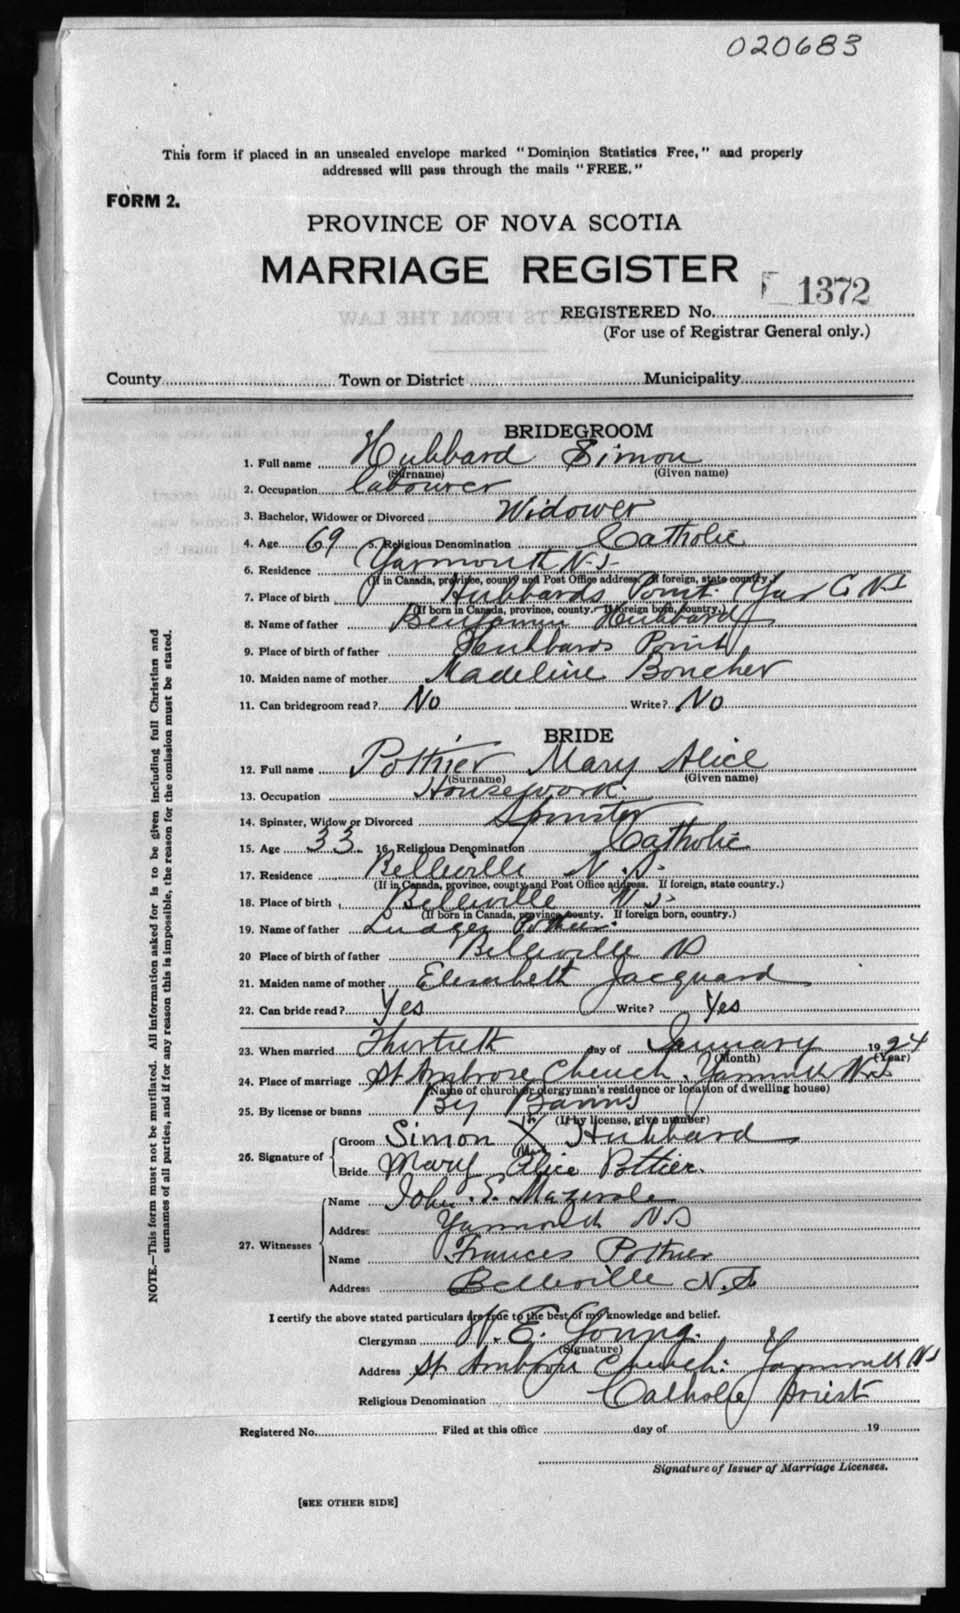 020683
This form if placed in an unsealed envelope marked "Dominion Statistics Free," and properly
addressed will pass through the mails "FREE."
FORM 2.
PROVINCE OF NOVA SCOTIA
MARRIAGE REGISTER
1372
REGISTERED No.
(For use of Registrar General only.)
County Town or District Municipality
BRIDEGROOM
1. Full name Hubbard Simon
(Surname) (Given name)
2. Occupation labourer
3. Bachelor, Widower or Divorced Widower
4. Age 69 5. Religious Denomination Catholic
6. Residence Yarmouth N.S.
(If in Canada, province, county and Post Office address. If foreign, state country.)
7. Place of birth Hubbards Point. Yar Co NS
(If born in Canada, province, county. If foreign born, country.)
8. Name of father Benjamin Hubbard
9. Place of birth of father Hubbards Point
10. Maiden name of mother Madeline Boucher
11. Can bridegroom read? No Write? No
BRIDE
12. Full name Pothier Mary Alice
(Surname) (Given name)
13. Occupation Housework.
14. Spinster, Widow or Divorced Spinster
15. Age 33 16. Religious Denomination Catholic
17. Residence Belleville N.S.
(If in Canada, province, county and Post Office address. If foreign, state country.)
18. Place of birth Belleville N.S.
(If born in Canada, province county. If foreign born, country.)
19. Name of father Pothier.
20 Place of birth of father Belleville NS
21. Maiden name of mother Elizabeth Jacquard
22. Can bride read? Yes Write? Yes
23. When married Thirtieth day of January 1924
(Month) (Year)
24. Place of marriage St Ambrose Church. Yarmouth N.S.
(Name of church or clergyman's residence or location of dwelling house)
25. By license or banns By Banns
(If by license, give number)
26. Signature of Groom Simon X Hubbard
Bride Mary Alice Pottier.
27. Witnesses
Name John S.
Address Yarmouth NS
Name Frances Pothier
Address Belleville N.S.
I certify the above stated particulars are true to the best of my knowledge and belief.
Clergyman E. Young.
(Signature)
Address St Ambrose Church. Yarmouth NS
Religious Denomination Catholic Priest
Registered No. Filed at this office day of 19
Signature of Issuer of Marriage Licenses.
[SEE OTHER SIDE]
NOTE.—This form must not be mutilated. All information asked for is to be given including full Christian and
surnames of all parties, and if for any reason this is impossible, the reason for the omission must be stated.